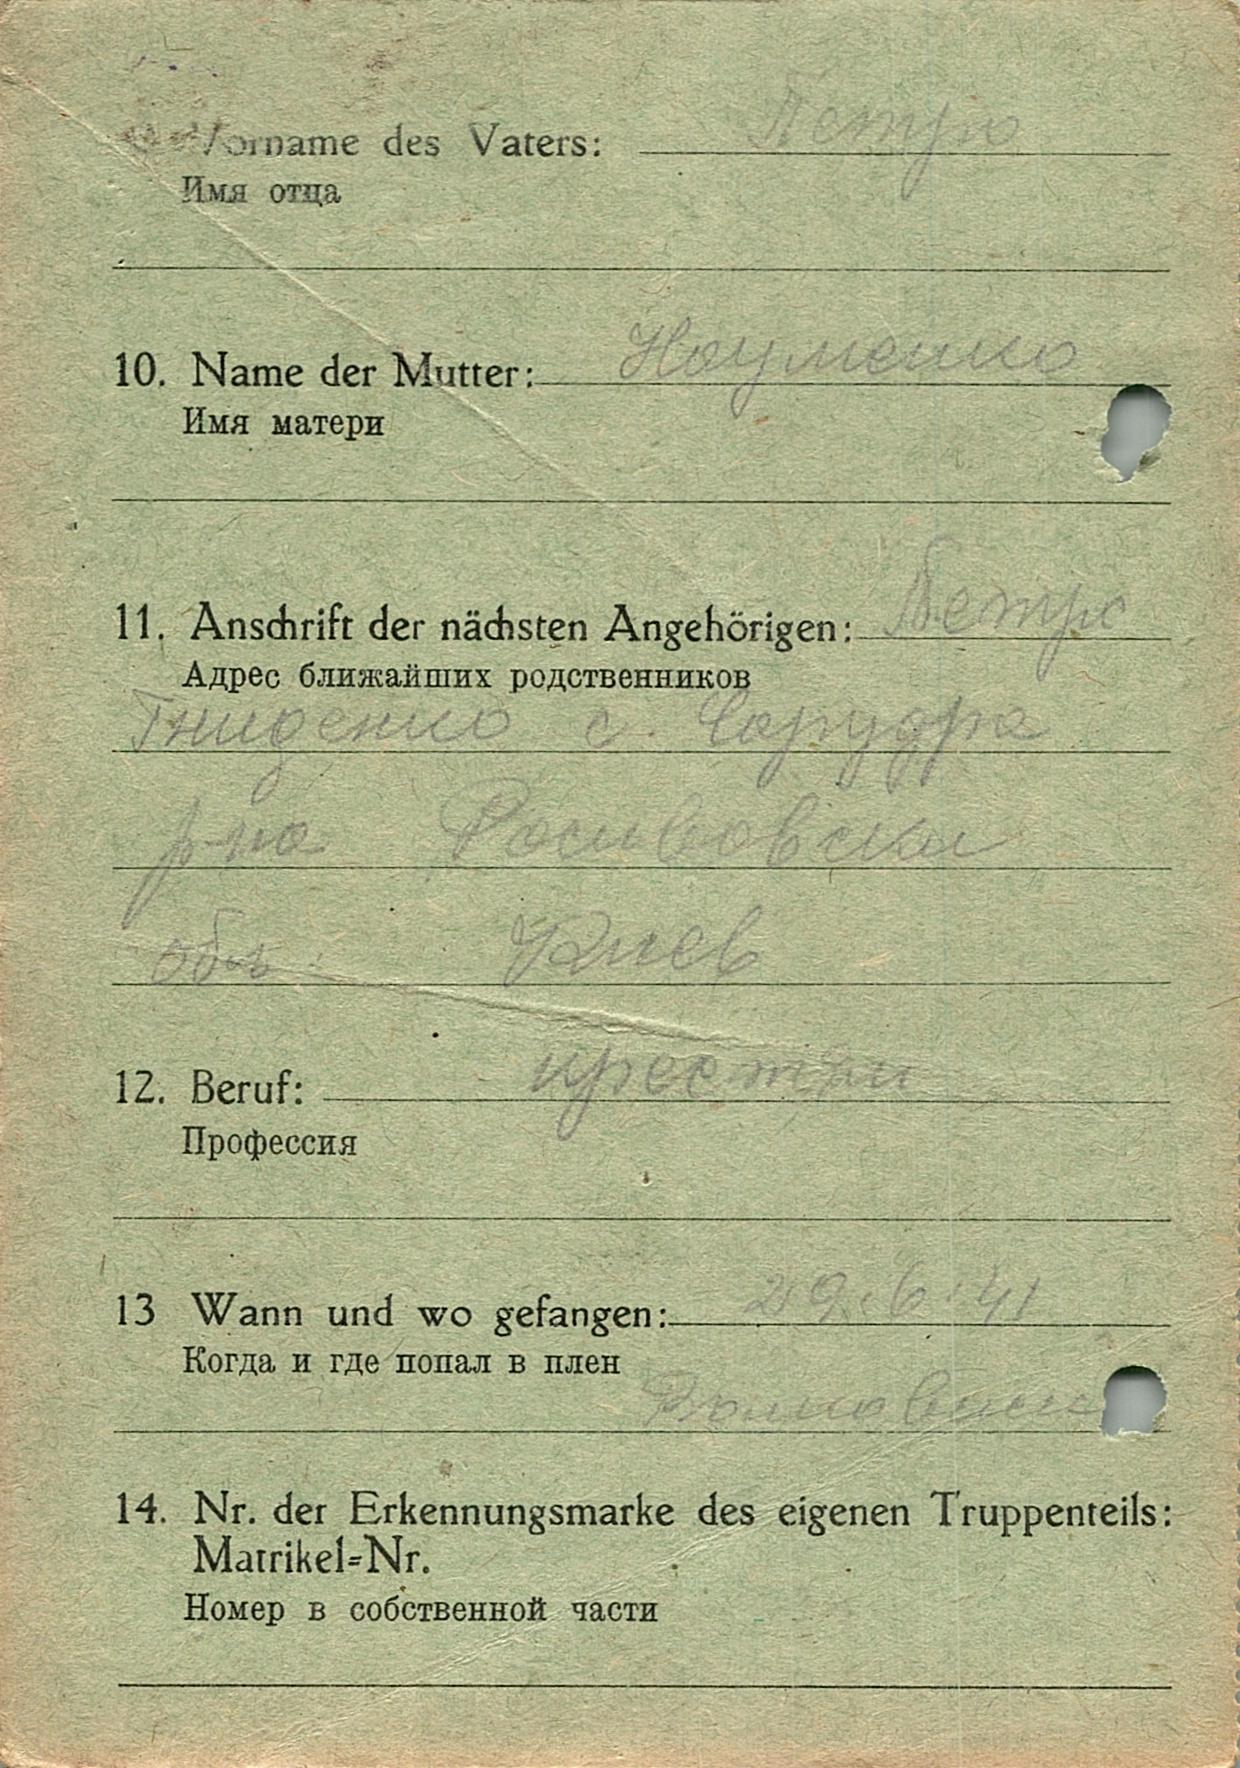 Vorname des Vaters: Петро
Имя отца
10. Name der Mutter: Науменко
Имя матери
11. Anschrift der nächsten Angehörigen: Петро
Адрес ближайших родственников
Гниденко с.
р-на
обл. Киев
12. Beruf:
Профессия
13 Wann und wo gefangen: 29.6.41
Когда и где попал в плен
14. Nr. der Erkennungsmarke des eigenen Truppenteils:
Matrikel=Nr.
Номер в собственной части